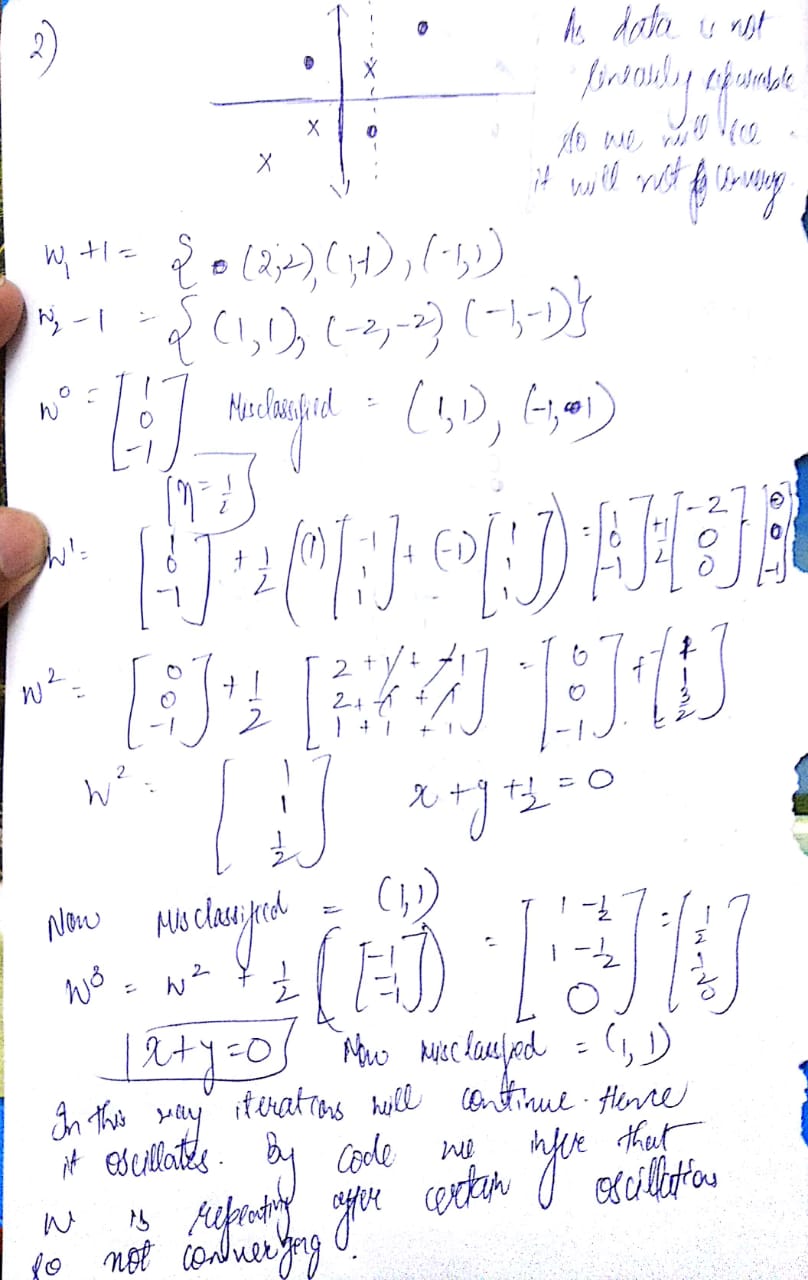 2)
As data is not
linearly separable
so we will see
it will not converge
W₁ +1 = { (2,2), (1,-1), (-1,1)
W₂ -1 = { (1,1), (-2,-2) (-1,-1)}
w⁰ = [1 0 -1] Misclassified = (1,1), (-1,1)
[η = 1/2]
w¹ = [1 0 -1] + 1/2 ((1)[-1 1 1] + (-1)[1 1 1]) = [1 0 -1] + 1/2 [-2 0 0] = [0 0 -1]
w² = [0 0 -1] + 1/2 [2 2 1 + 1 + 1] = [0 0 -1] + [1 1 3/2]
w² = [1 1 1/2] x + y + 1/2 = 0
Now Misclassified = (1,1)
w³ = w² + 1/2 ([-1 -1 -1]) = [1 - 1/2 1 - 1/2 0] = [1/2 1/2 0]
x+y=0 Now misclassified = (1,1)
In this way iterations will continue. Hence
it oscillates. By code we infer that
w is repeating after certain oscillations
so not converging.